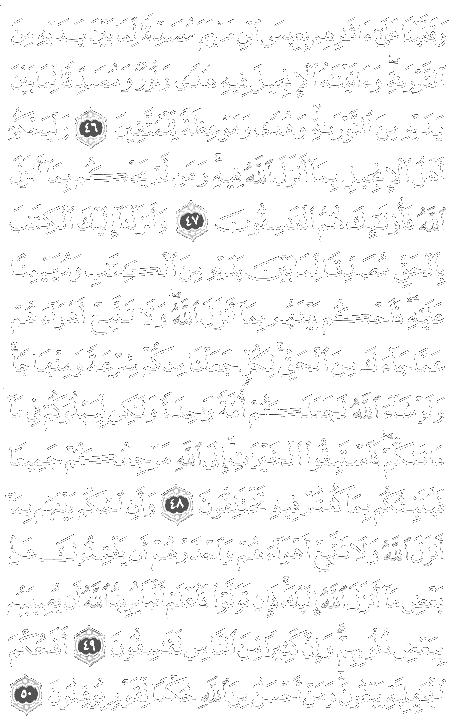 وَقَفَّيْنَا عَلَىٰ ءَاثَٰرِهِم بِعِيسَى ٱبْنِ مَرْيَمَ مُصَدِّقًا لِّمَا بَيْنَ يَدَيْهِ مِنَ
ٱلتَّوْرَىٰةِ ۖ وَءَاتَيْنَٰهُ ٱلْإِنجِيلَ فِيهِ هُدًى وَنُورٌ وَمُصَدِّقًا لِّمَا بَيْنَ
يَدَيْهِ مِنَ ٱلتَّوْرَىٰةِ وَهُدًى وَمَوْعِظَةً لِّلْمُتَّقِينَ ٤٦ وَلْيَحْكُمْ
أَهْلُ ٱلْإِنجِيلِ بِمَآ أَنزَلَ ٱللَّهُ فِيهِ ۚ وَمَن لَّمْ يَحْكُم بِمَآ أَنزَلَ
ٱللَّهُ فَأُو۟لَٰٓئِكَ هُمُ ٱلْفَٰسِقُونَ ٤٧ وَأَنزَلْنَآ إِلَيْكَ ٱلْكِتَٰبَ
بِٱلْحَقِّ مُصَدِّقًا لِّمَا بَيْنَ يَدَيْهِ مِنَ ٱلْكِتَٰبِ وَمُهَيْمِنًا
عَلَيْهِ ۖ فَٱحْكُم بَيْنَهُم بِمَآ أَنزَلَ ٱللَّهُ ۖ وَلَا تَتَّبِعْ أَهْوَآءَهُمْ
عَمَّا جَآءَكَ مِنَ ٱلْحَقِّ ۚ لِكُلٍّ جَعَلْنَا مِنكُمْ شِرْعَةً وَمِنْهَاجًا ۚ
وَلَوْ شَآءَ ٱللَّهُ لَجَعَلَكُمْ أُمَّةً وَٰحِدَةً وَلَٰكِن لِّيَبْلُوَكُمْ فِى مَآ
ءَاتَىٰكُمْ ۖ فَٱسْتَبِقُوا۟ ٱلْخَيْرَٰتِ ۚ إِلَى ٱللَّهِ مَرْجِعُكُمْ جَمِيعًا
فَيُنَبِّئُكُم بِمَا كُنتُمْ فِيهِ تَخْتَلِفُونَ ٤٨ وَأَنِ ٱحْكُم بَيْنَهُم بِمَآ
أَنزَلَ ٱللَّهُ وَلَا تَتَّبِعْ أَهْوَآءَهُمْ وَٱحْذَرْهُمْ أَن يَفْتِنُوكَ عَنۢ
بَعْضِ مَآ أَنزَلَ ٱللَّهُ إِلَيْكَ ۖ فَإِن تَوَلَّوْا۟ فَٱعْلَمْ أَنَّمَا يُرِيدُ ٱللَّهُ أَن يُصِيبَهُم
بِبَعْضِ ذُنُوبِهِمْ ۗ وَإِنَّ كَثِيرًا مِّنَ ٱلنَّاسِ لَفَٰسِقُونَ ٤٩ أَفَحُكْمَ
ٱلْجَٰهِلِيَّةِ يَبْغُونَ ۚ وَمَنْ أَحْسَنُ مِنَ ٱللَّهِ حُكْمًا لِّقَوْمٍ يُوقِنُونَ ٥٠